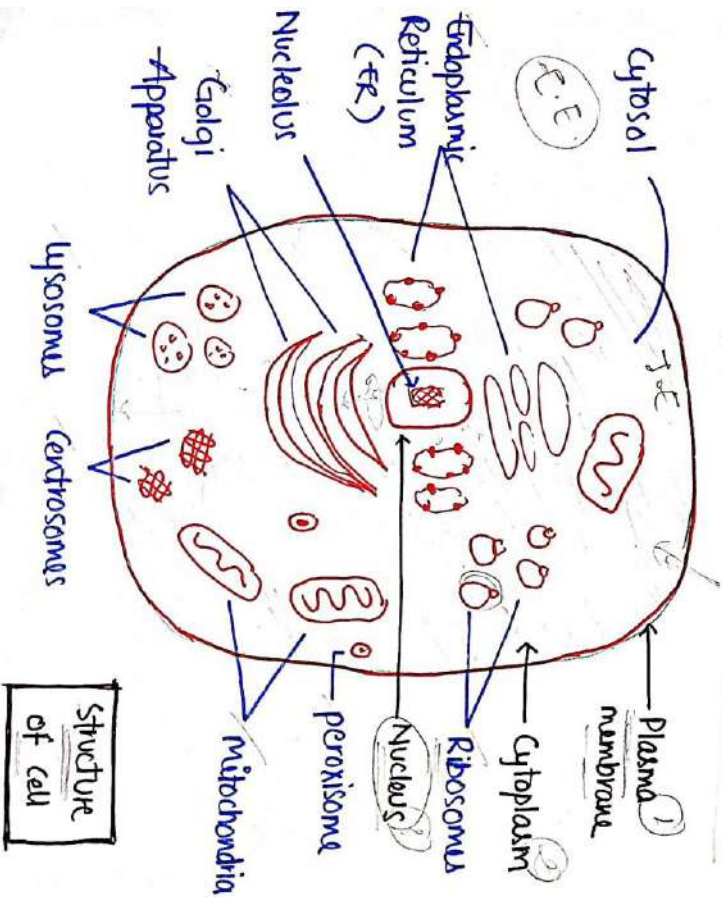 Cytosol
Endoplasmic
Reticulum
(ER)
Nucleolus
Golgi
Apparatus
Lysosomes
Centrosomes
Plasma 1
membrane
Cytoplasm
Ribosomes
Nucleus
peroxisome
Mitochondria
Structure
of cell